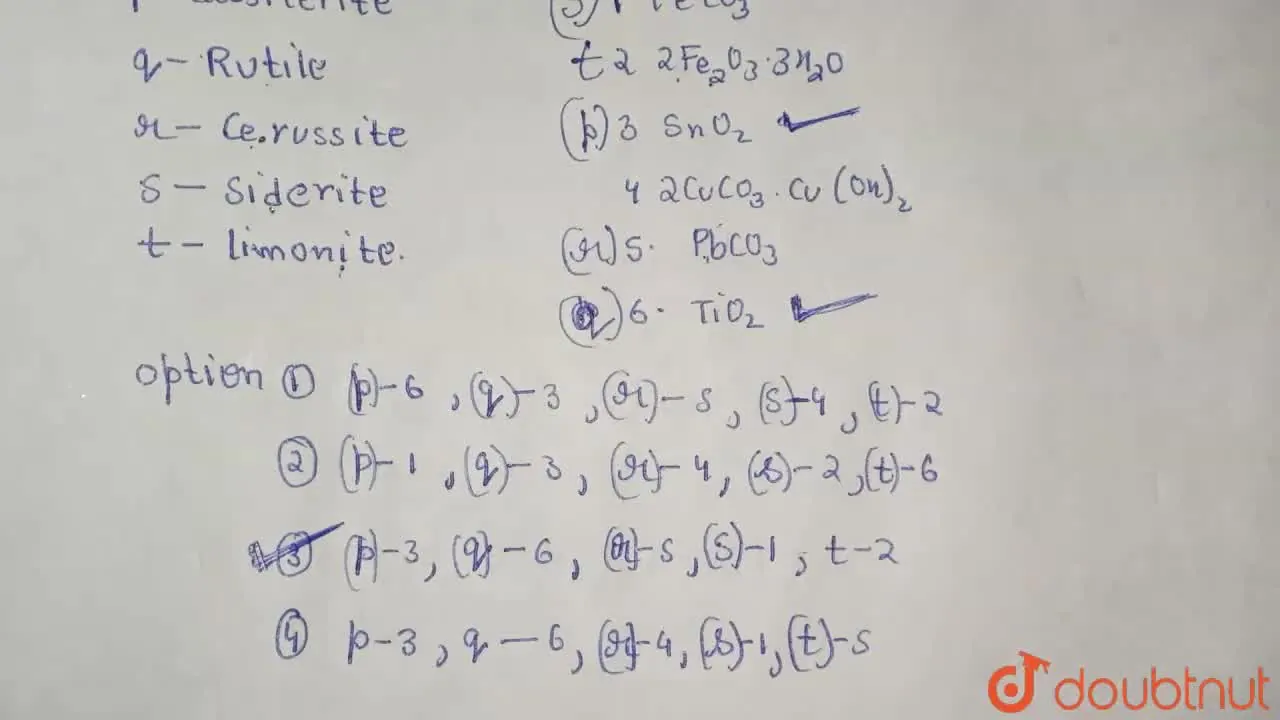 q - Rutile t 2 2Fe₂O₃·3H₂O
r - Cerussite (p) 3 SnO₂
s - Siderite 4 2CuCO₃·Cu(OH)₂
t - limonite. (r) 5. PbCO₃
(q) 6. TiO₂
option ① (p)-6, (q)-3, (r)-5, (s)-4, (t)-2
② (p)-1, (q)-3, (r)-4, (s)-2, (t)-6
③ (p)-3, (q)-6, (r)-5, (s)-1, t-2
④ p-3, q-6, (r)-4, (s)-1, (t)-5
doubtnut